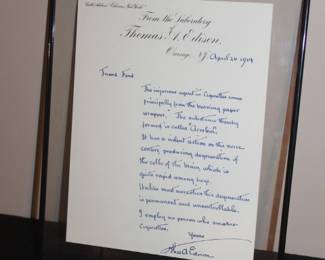 Cable Address "Edison, New York"
From the Laboratory
of
Thomas A. Edison,
Orange, N.J. April 26 1914
Friend Ford
The injurious agent in Cigarettes comes
principally from the burning paper
wrapper. The substance thereby
formed is called "Acrolein".
It has a violent action on the nerve
centers, producing degeneration of
the cells of the brain, which is
quite rapid among boys.
Unlike most narcotics this degeneration
is permanent and uncontrollable.
I employ no person who smokes
Cigarettes.
Yours
Thos A Edison